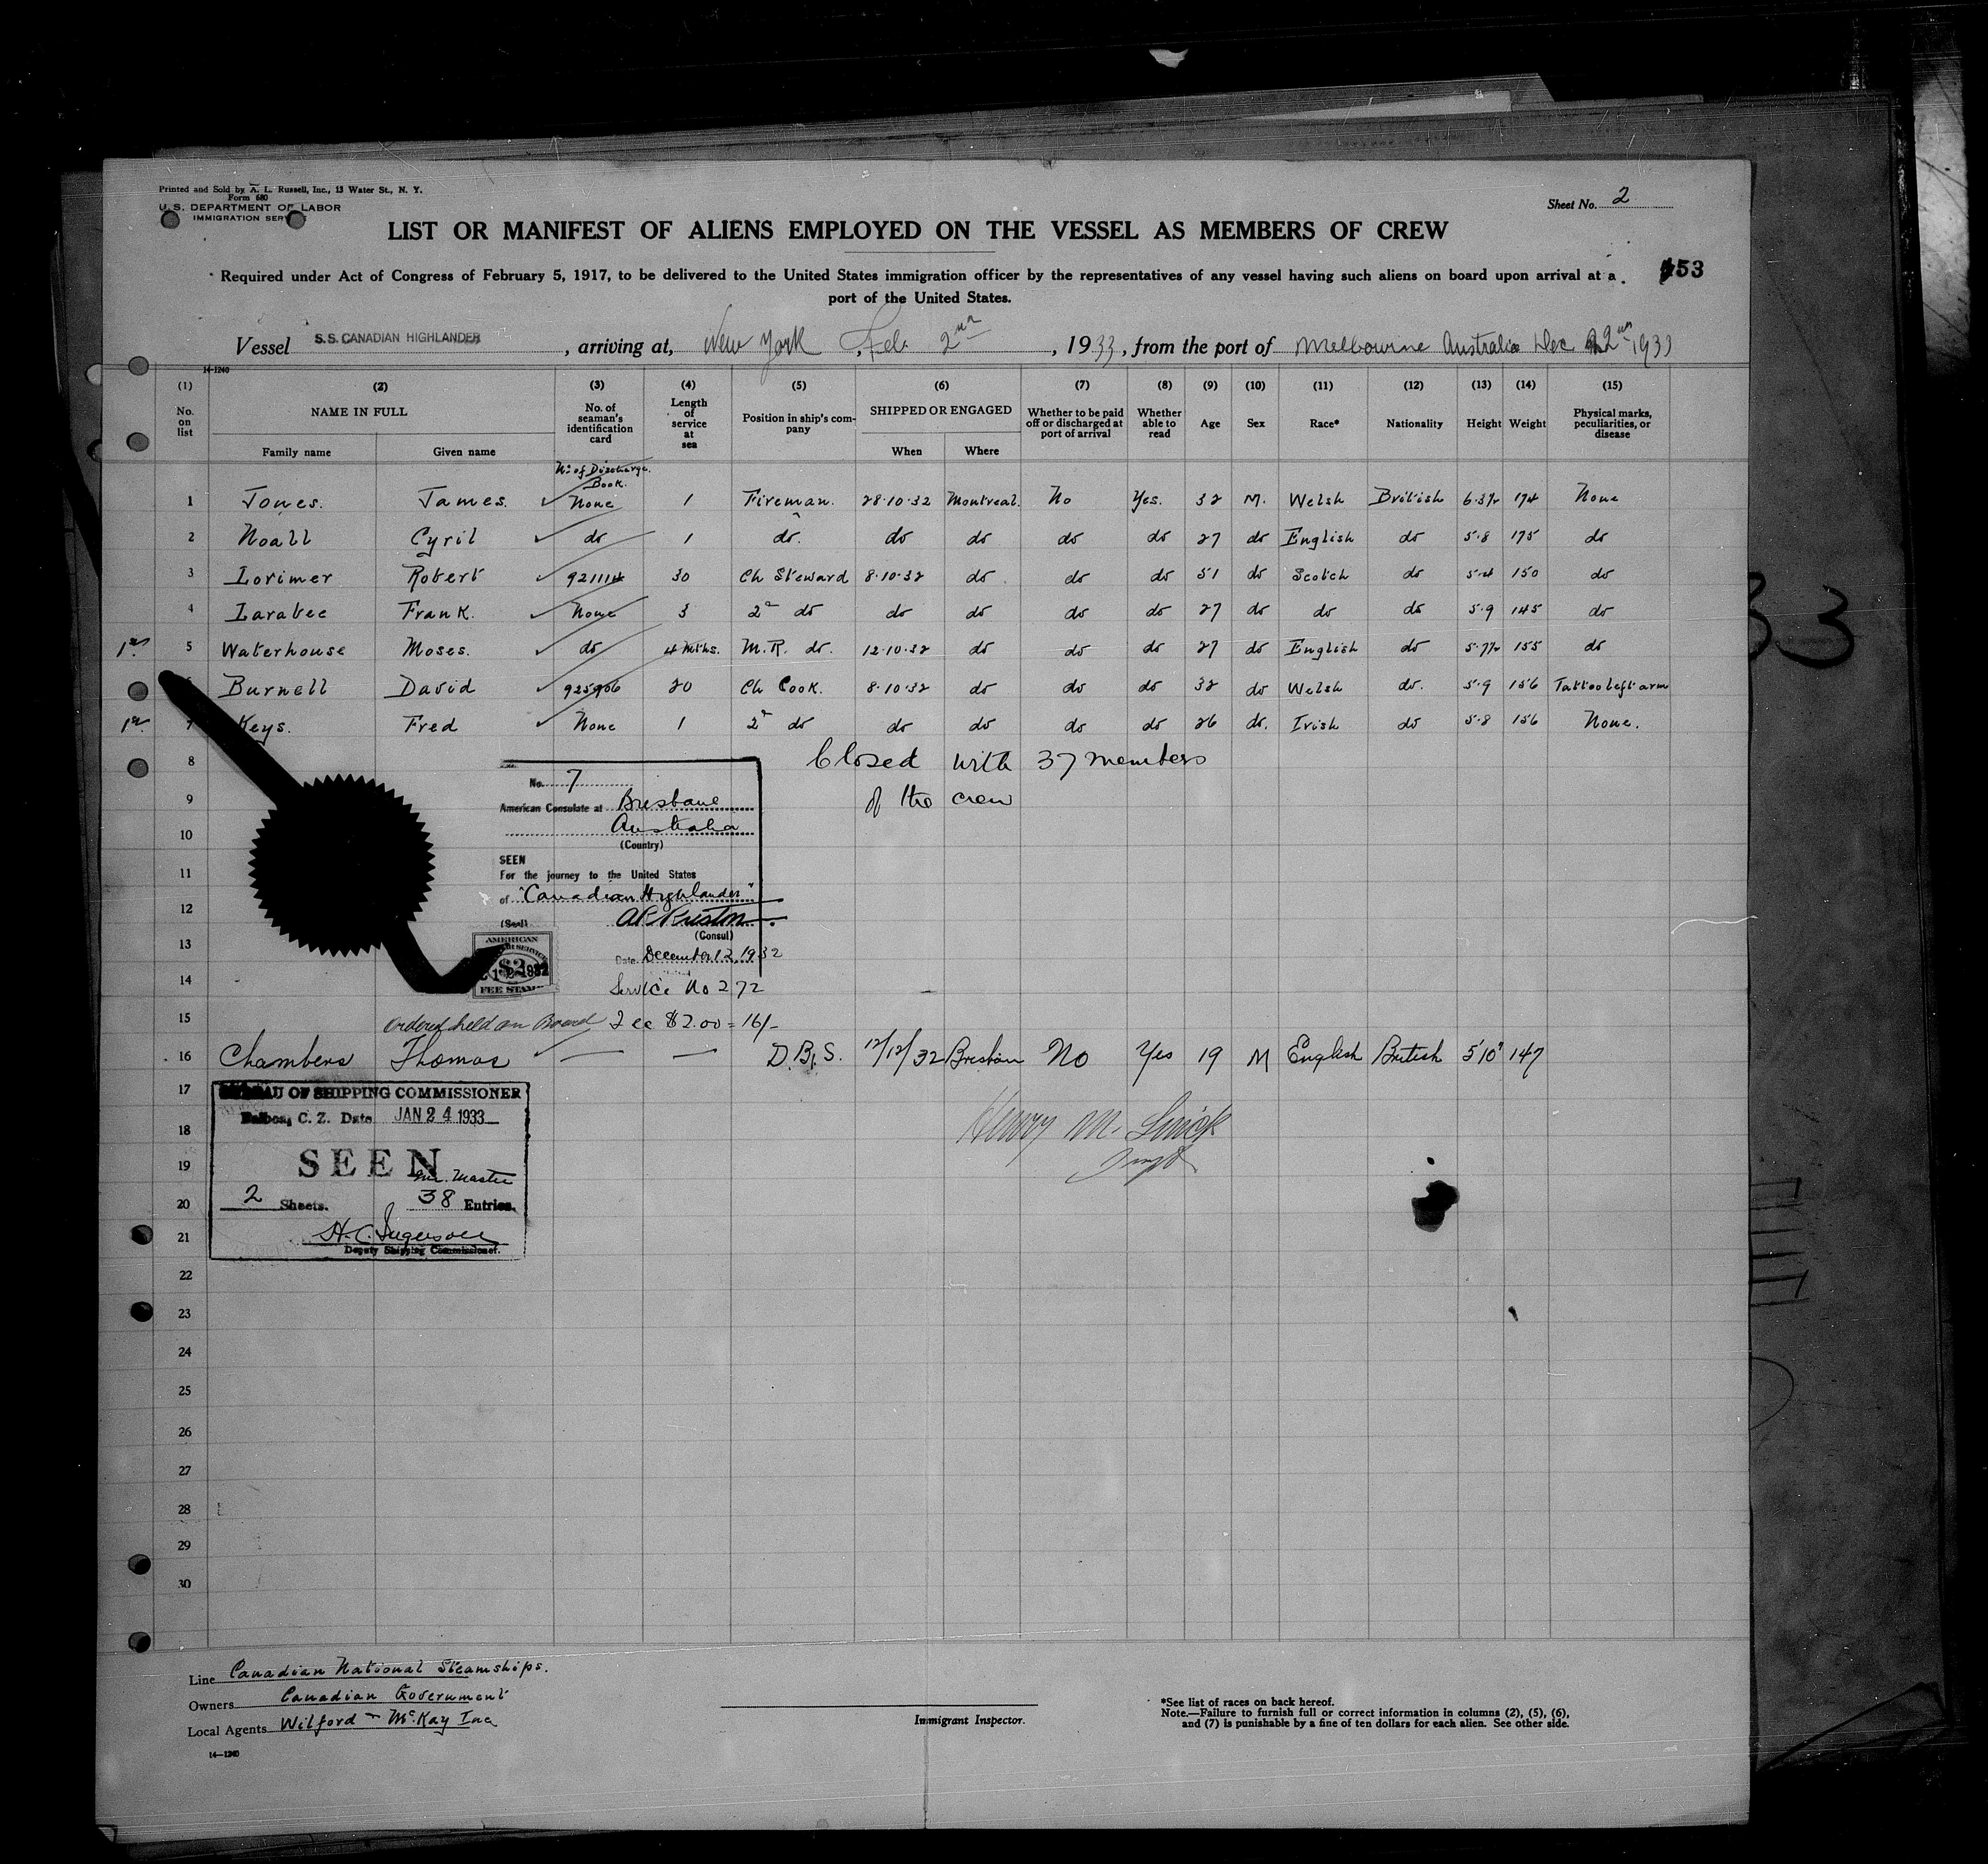 Printed and Sold by A. L. Russell, Inc., 13 Water St., N. Y.
Form 680
U. S. DEPARTMENT OF LABOR
IMMIGRATION SERV
Sheet No. 2
LIST OR MANIFEST OF ALIENS EMPLOYED ON THE VESSEL AS MEMBERS OF CREW
Required under Act of Congress of February 5, 1917, to be delivered to the United States immigration officer by the representatives of any vessel having such aliens on board upon arrival at a
port of the United States.
53
Vessel S.S. CANADIAN HIGHLANDER, arriving at, New York, Feb. 2nd, 1933, from the port of Melbourne Australia Dec 2nd 1933
14-1240
(1) (2) (3) (4) (5) (6) (7) (8) (9) (10) (11) (12) (13) (14) (15)
No. on list NAME IN FULL No. of seaman's identification card Length of service at sea Position in ship's company SHIPPED OR ENGAGED Whether to be paid off or discharged at port of arrival Whether able to read Age Sex Race* Nationality Height Weight Physical marks, peculiarities, or disease
Family name Given name When Where
No of Discharge Book.
1 Jones. James. None 1 Fireman. 28.10.32 Montreal. No Yes. 32 M. Welsh British 6.3½ 174 None
2 Noall Cyril do 1 do. do do do do 27 do English do 5.8 175 do
3 Lorimer Robert 921114 30 Ch Steward 8.10.32 do do do 51 do Scotch do 5.4 150 do
4 Larabee Frank. None 3 2d do do do do do 27 do do do 5.9 145 do
5 Waterhouse Moses. do 4 Mths. M.R. do. 12.10.32 do do do 27 do English do 5.7½ 155 do
Burnell David 925906 20 Ch Cook. 8.10.32 do do do 32 do Welsh do. 5.9 156 Tattoo left arm
Keys. Fred None 1 2d do do do do do 26 do. Irish do 5.8 156 None.
8 Closed with 37 members
9 of the crew
No. 7
American Consulate at Brisbane
10 Australia
(Country)
SEEN
11 For the journey to the United States
of "Canadian Highlander"
12
(Seal)
(Consul)
13 Date December 12, 1932
AMERICAN
$2
FEE STAMP
14 Service No 272
15 Ordered held on Board Fee $2.00 = 16/-
16 Chambers Thomas — — D.B.S. 12/12/32 Brisbane No Yes 19 M English British 5'10" 147
17 AU OF SHIPPING COMMISSIONER
Balboa, C. Z. Date JAN 24 1933
18 Henry M.
19 SEEN
Inc. Master
20 2 Sheets. 38 Entries.
21 H. C. Ingersoll
Deputy Shipping Commissioner.
22
23
24
25
26
27
28
29
30
Line Canadian National Steamships.
Owners Canadian Government
Local Agents Wilford - McKay Inc
14-1240
Immigrant Inspector.
*See list of races on back hereof.
Note.—Failure to furnish full or correct information in columns (2), (5), (6),
and (7) is punishable by a fine of ten dollars for each alien. See other side.